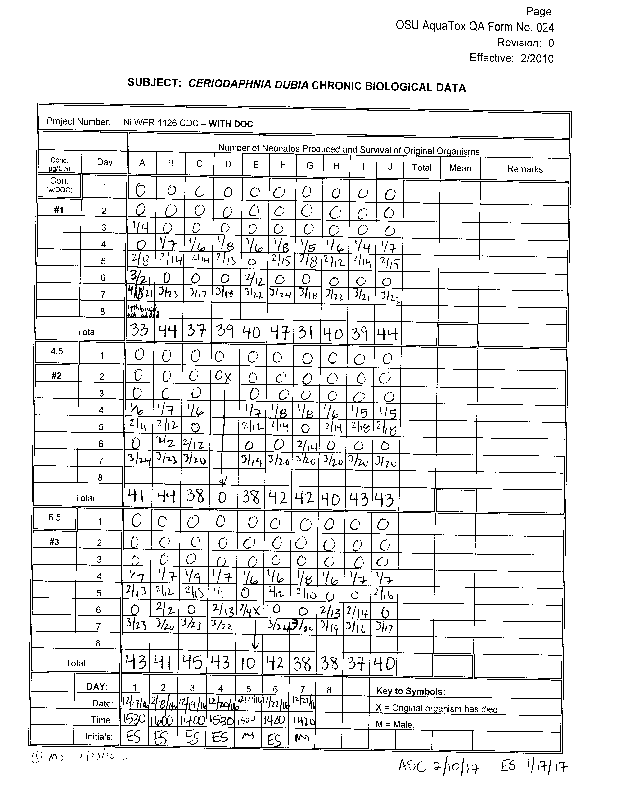 Page
OSU AquaTox QA Form No. 024
Revision: 0
Effective: 2/2010
SUBJECT: CERIODAPHNIA DUBIA CHRONIC BIOLOGICAL DATA
Project Number: Ni WER 1126 CDC – WITH DOC
Number of Neonates Produced and Survival of Original Organisms
Conc. Day A B C D E F G H I J Total Mean Remarks
Cont. 1 0 0 0 0 0 0 0 0 0 0
#1 2 0 0 0 0 0 0 0 0 0 0
3 1/4 0 0 0 0 0 0 0 0 0
4 0 1/7 1/6 1/8 1/6 1/8 1/5 1/6 1/4 1/7
5 2/8 2/14 2/14 2/13 0 2/15 2/8 2/12 2/14 2/15
6 3/21 0 0 0 2/12 0 0 0 0 0
7 3/23 3/17 3/18 3/22 3/24 3/18 3/22 3/21
8
Total 33 44 37 39 40 47 31 40 39 44
4.5 1 0 0 0 0 0 0 0 0 0 0
#2 2 0 0 0 0X 0 0 0 0 0 0
3 0 0 0 0 0 0 0 0 0
4 1/6 1/7 1/6 1/7 1/8 1/8 1/6 1/5 1/5
5 2/11 2/12 0 2/12 2/14 0 2/14 2/18 2/18
6 0 2/12 0 0 2/14 0 0 0
7 3/24 3/23 3/20 3/19 3/20 3/20 3/20 3/20 3/20
8
Total 41 44 38 0 38 42 42 40 43 43
6.5 1 0 0 0 0 0 0 0 0 0 0
#3 2 0 0 0 0 0 0 0 0 0 0
3 0 0 0 0 0 0 0 0 0 0
4 1/7 1/7 1/9 1/7 1/6 1/6 1/8 1/6 1/7 1/7
5 2/13 2/12 2/13 0 2/12 2/10 0 0 2/16
6 0 2/2 0 2/13 2/4X 0 0 2/13 2/14 0
7 3/23 3/20 3/23 3/22 3/24 3/20 3/19 3/16 3/17
8
Total 43 41 45 43 10 42 38 38 37 40
DAY: 1 2 3 4 5 6 7 8 Key to Symbols:
Date: X = Original organism has died
Time 1530 1600 1400 1530 1420 1420 M = Male
Initials: ES ES ES ES M ES M
ASC 2/10/17 ES 1/17/17